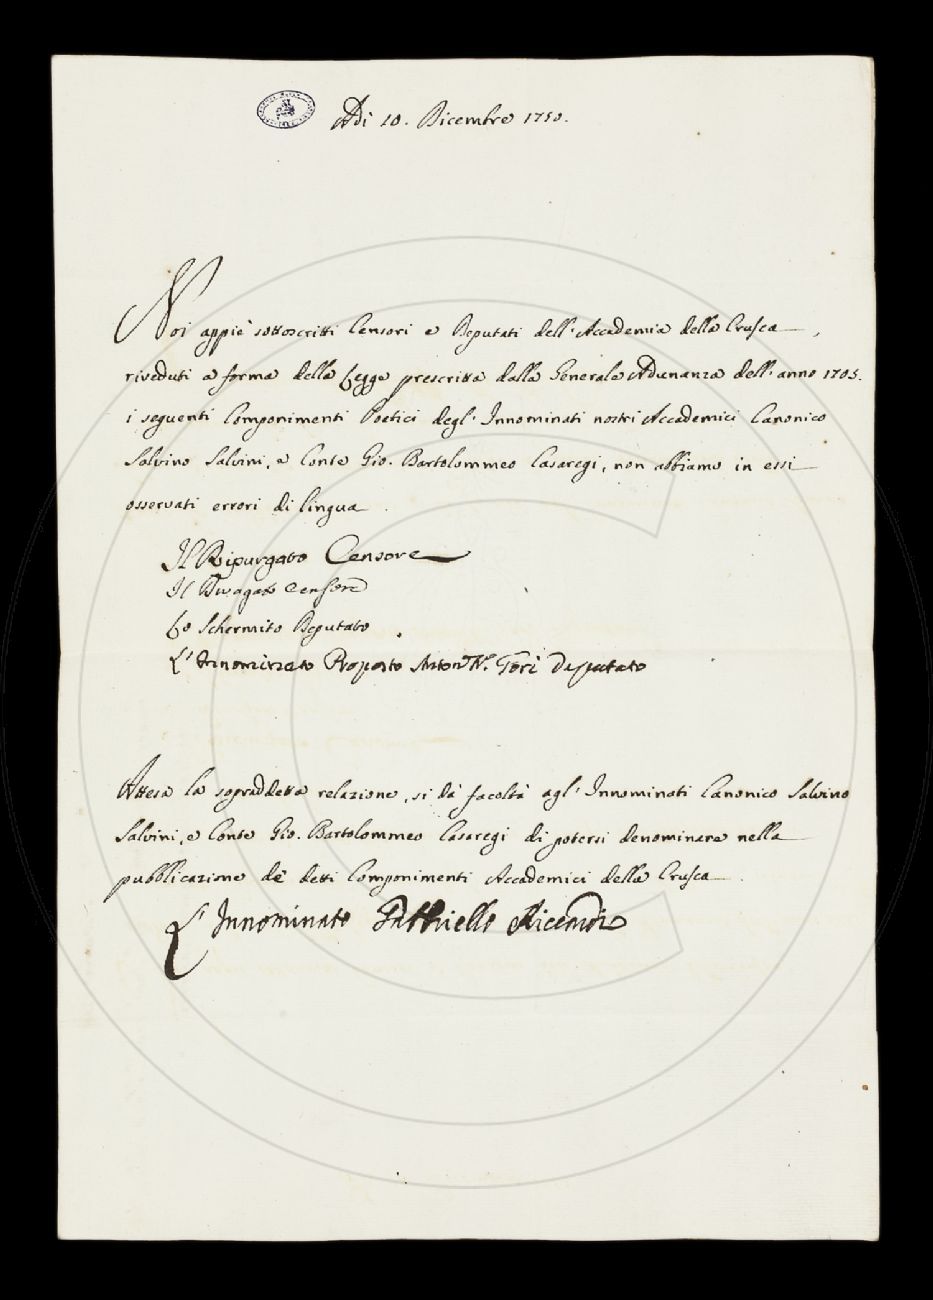 Adì 10. Dicembre 1750.
Noi appiè sottoscritti Censori e Deputati dell'Accademia della Crusca,
riveduti a forma della Legge prescritta dalla Generale Adunanza dell'anno 1705.
i seguenti Componimenti Poetici degl'Innominati nostri Accademici Canonico
Salvino Salvini, e Conte Gio. Bartolommeo Casaregi, non abbiamo in essi
osservati errori di lingua.
Il Ripurgato Censore
Il Censore
Lo Schermito Deputato
L'Innominato Proposto Anton Fr. Gori Deputato
Attesa la sopraddetta relazione, si dà facoltà agl'Innominati Canonico Salvino
Salvini, e Conte Gio. Bartolommeo Casaregi di potersi denominare nella
pubblicazione de detti Componimenti Accademici della Crusca.
L'Innominato Riccardi